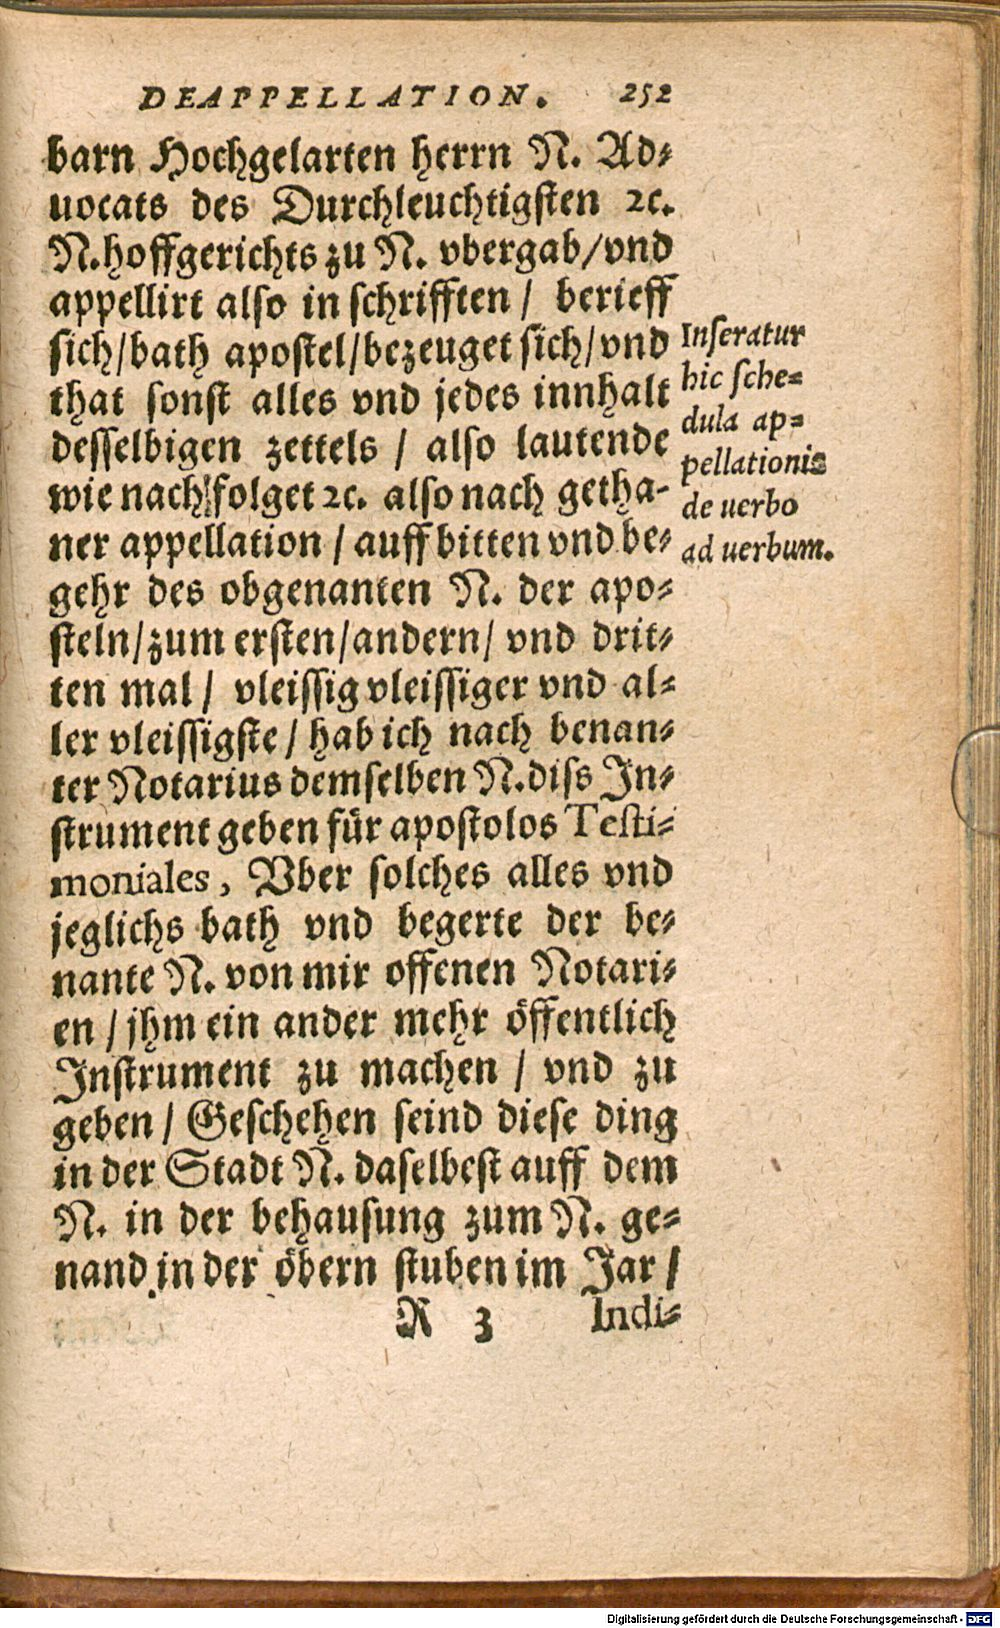 DE APPELLATION. 252
barn Hochgelarten herrn N. Ad⸗
uocats des Durchleuchtigsten ꝛc.
N. hoffgerichts zu N. vbergab/vnd
appellirt also in schrifften / berieff
sich/bath apostel/bezeuget sich/vnd
that sonst alles vnd jedes innhalt
desselbigen zettels / also lautende
wie nach folget ꝛc. also nach getha-
ner appellation / auff bitten vnd be⸗
gehr des obgenanten N. der apo⸗
steln/zum ersten/andern/ vnd drit⸗
ten mal / vleissig vleissiger vnd al⸗
ler vleissigste / hab ich nach benan⸗
ter Notarius demselben N. diss In⸗
strument geben für apostolos Testi⸗
moniales, Vber solches alles vnd
jeglichs bath vnd begerte der be⸗
nante N. von mir offenen Notari⸗
en / jhm ein ander mehr öffentlich
Instrument zu machen / vnd zu
geben / Geschehen seind diese ding
in der Stadt N. daselbest auff dem
N. in der behausung zum N. ge⸗
nand in der öbern stuben im Jar /
R 3 Indi⸗
Inseratur
hic sche⸗
dula ap⸗
pellationis
de uerbo
ad uerbum.
Digitalisierung gefördert durch die Deutsche Forschungsgemeinschaft - DFG